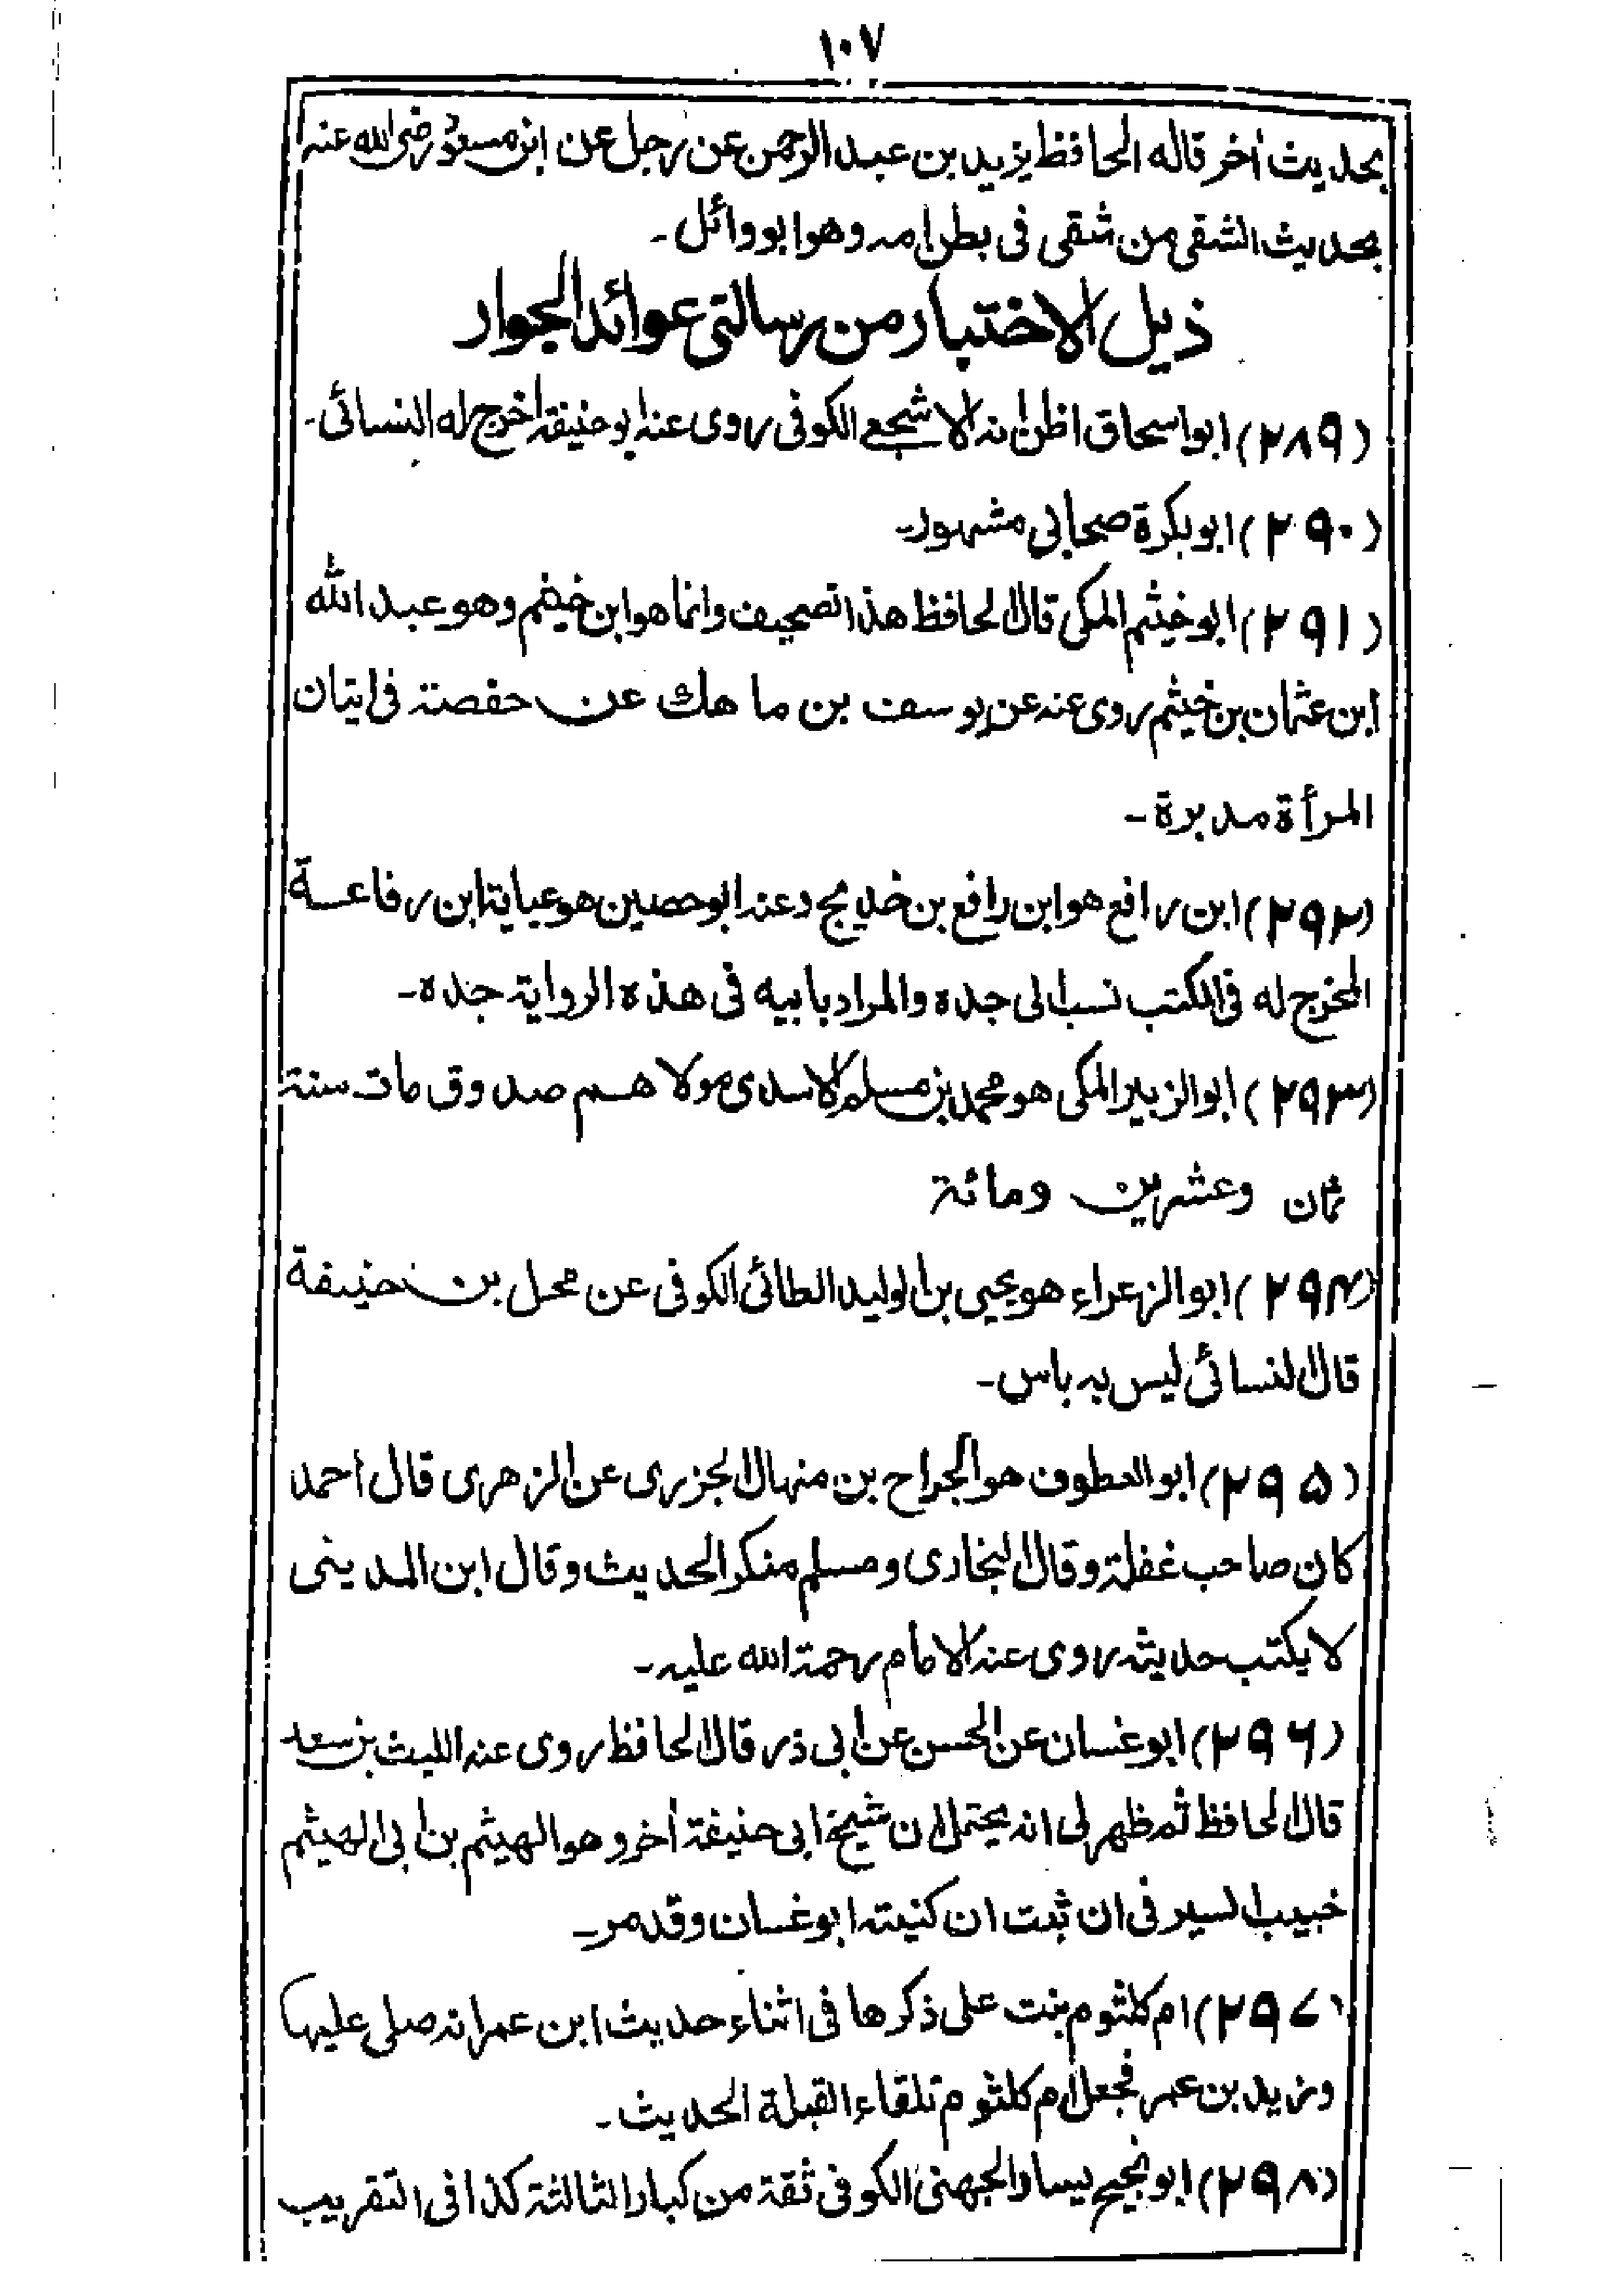 ۱۰۷
بحديث أخر قاله الحافظ يزيد بن عبد الرحمن عن رجل عن ابن مسعود رضی الله عنه
بحديث الشقی من شقی فی بطن امه وهو ابو وائل۔
ذيل الاختبار من رسالتی عوائد الجوار
(۲۸۹) ابو اسحاق اظن انه الاشجعی الكوفی روی عنه ابو حنيفة اخرج له النسائی۔
(۲۹۰) ابو بكرة صحابی مشهور۔
(۲۹۱) ابو خيثم المكی قال الحافظ هذا تصحيف وانما هو ابن خيثم وهو عبد الله
ابن عثمان بن خيثم روی عنه عن يوسف بن ماهك عن حفصة فی اتيان
المرأة مدبرة۔
(۲۹۲) ابن رافع هو ابن رافع بن خديج وعنه ابو حصين هو عباية ابن رفاعة
المخرج له فی الكتب نسب الی جده والمراد بابيه فی هذه الرواية جده۔
(۲۹۳) ابو الزبير المكی هو محمد بن مسلم الاسدی مولاهم صدوق مات سنة
ثمان وعشرين ومائة
(۲۹۴) ابو الزعراء هو يحيی بن الوليد الطائی الكوفی عن محل بن حنيفة
قال النسائی ليس به باس۔
(۲۹۵) ابو العطوف هو الجراح بن منهال الجزری عن الزهری قال احمد
كان صاحب غفلة وقال البخاری ومسلم منكر الحديث وقال ابن المدينی
لا يكتب حديثه روی عنه الامام رحمة الله عليه۔
(۲۹۶) ابو غسان عن الحسن عن ابی ذر قال الحافظ روی عنه الليث بن سعد
قال الحافظ ثم ظهر لی انه يحتمل ان شيخ ابی حنيفة أخر وهو الهيثم بن ابی الهيثم
خبيب السيرفی ان ثبت ان كنيته ابو غسان وقد مر۔
(۲۹۷) ام كلثوم بنت علی ذكرها فی اثناء حديث ابن عمر انه صلی عليها
وزيد بن عمر فجعل ام كلثوم تلقاء القبلة الحديث۔
(۲۹۸) ابو نجيح يسار الجهنی الكوفی ثقة من كبار الثالثة كذا فی التقريب